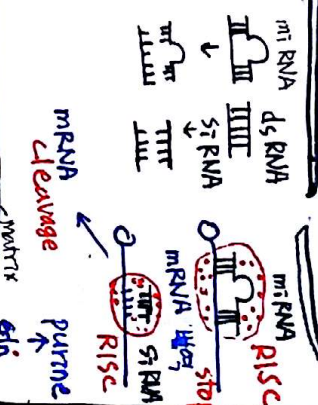 miRNA
dsRNA
↓
siRNA
miRNA
RISC
mRNA
siRNA
RISC
mRNA
cleavage
purine